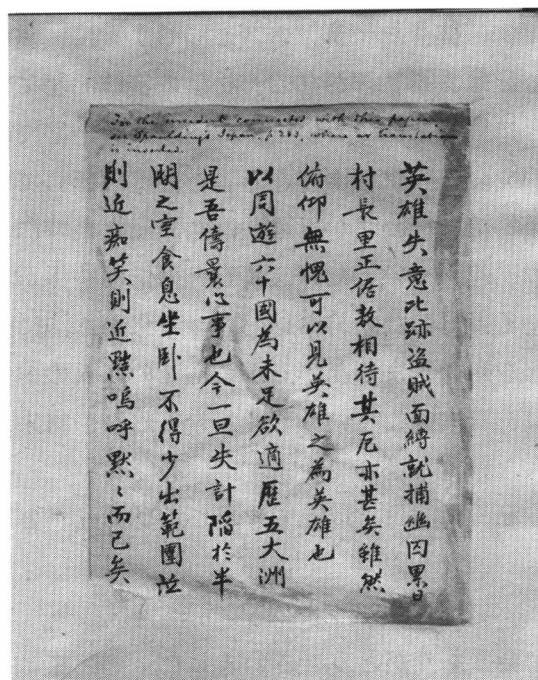 For the incident connected with this paper
see Spaulding's Japan, p. 283, where a translation
is inserted.
英雄失意比跡盗賊面縛就捕幽囚累日
村長里正倨敖相待其厄亦甚矣雖然
俯仰無愧可以見英雄之為英雄也
以周遊六十國為未足欲適歷五大洲
是吾儕曩心事也今一旦失計陷於半
間之室食息坐卧不得少出範圍泣
則近痴笑則近黠嗚呼黙〻而已矣